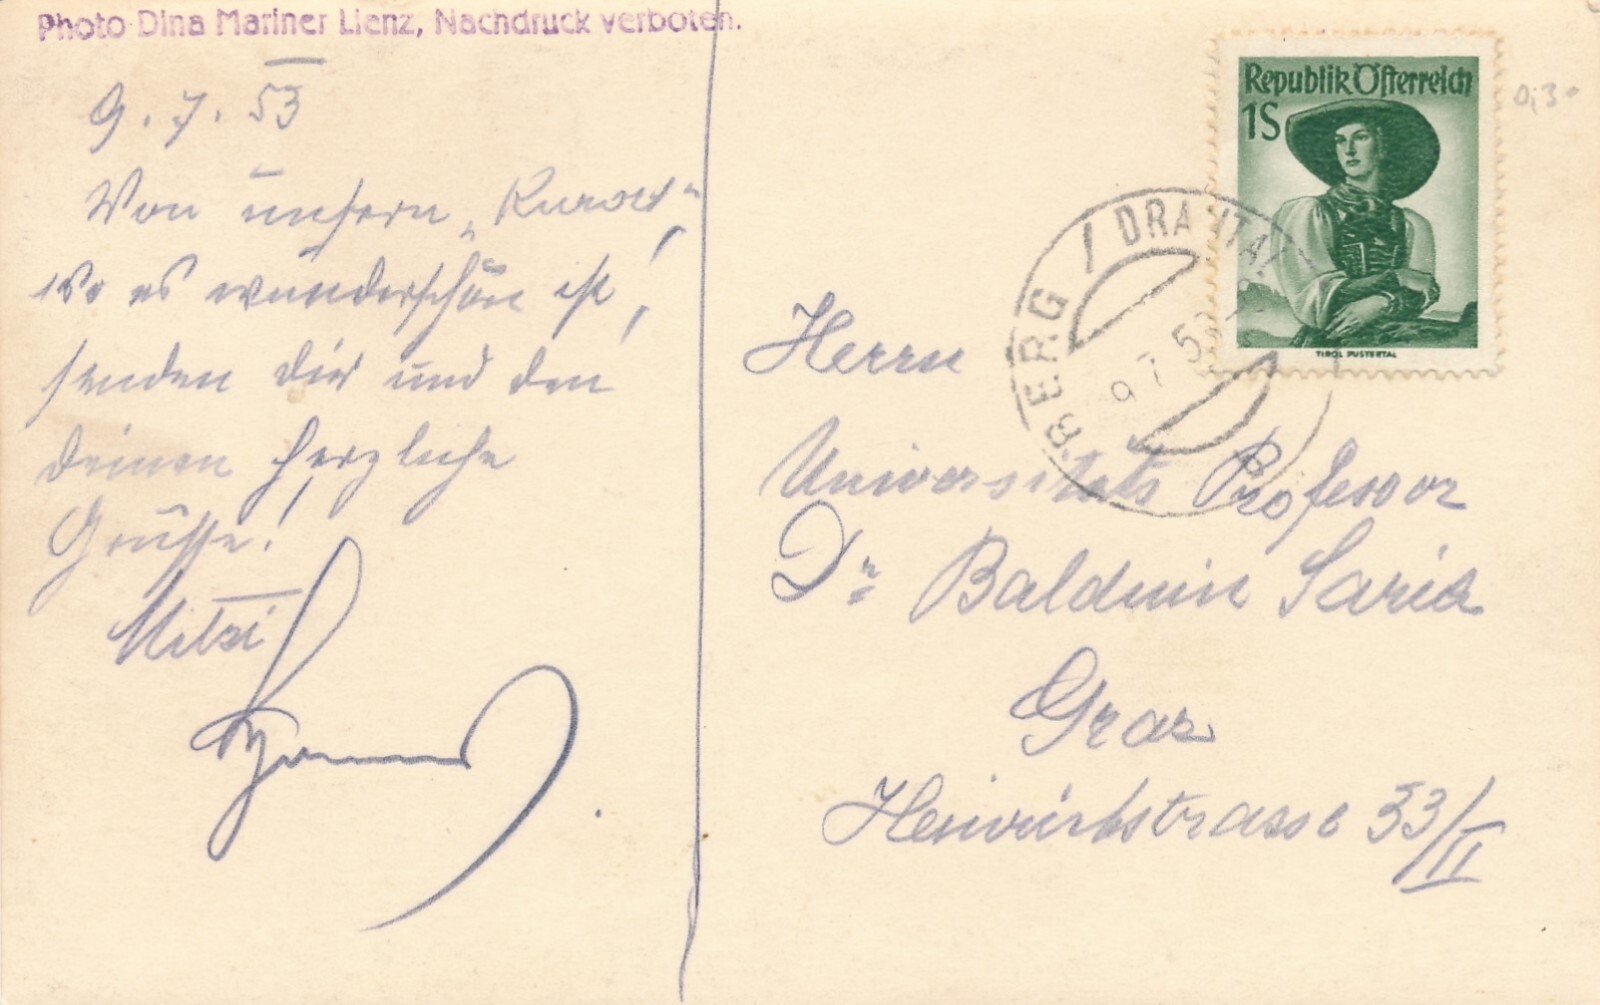 Photo Dina Mariner Lienz, Nachdruck verboten.
9. 7. 53
Von unsern „Kurort"
wo es wunderschön ist,
senden dir und den
deinen herzliche
Grüsse!
Mitzi
Republik Österreich
1S
TIROL PUSTERTAL
0,30
BERG / DRAUTAL
9 7 53
Herrn
Universitäts Professor
Dr Balduin Saria
Graz
33/II